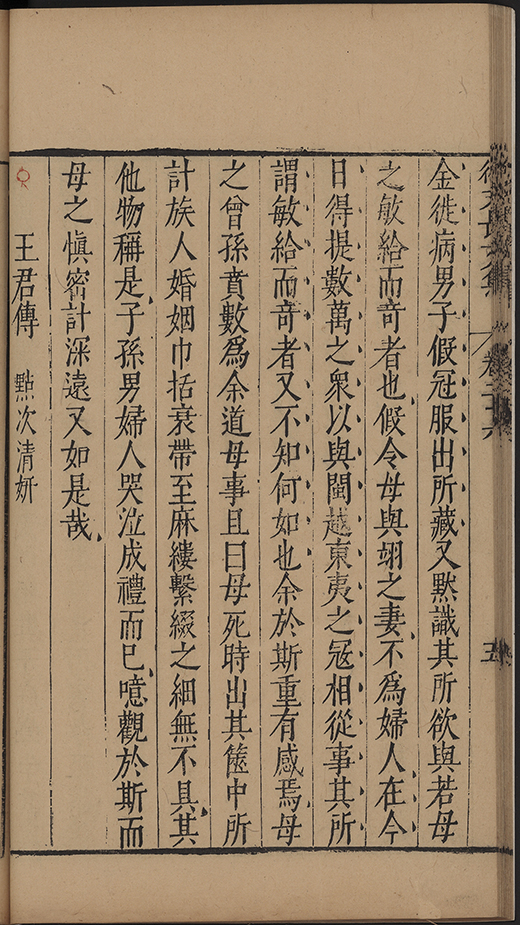 金徙病男子假冠服出所藏又默識其所欲與若母
之敏給而竒者也假令母與翊之妻不爲婦人在今
日得提數萬之衆以與閩越東夷之宼相從事其所
謂敏給而竒者又不知何如也余於斯重有感焉母
之曾孫賁數爲余道母事且曰母死時出其篋中所
計族人婚姻巾括衰帶至麻縷繫綴之細無不具其
他物稱是子孫男婦人哭泣成禮而巳噫觀於斯而
母之愼宻計深遠又如是哉
王君傳 㸃次清妍